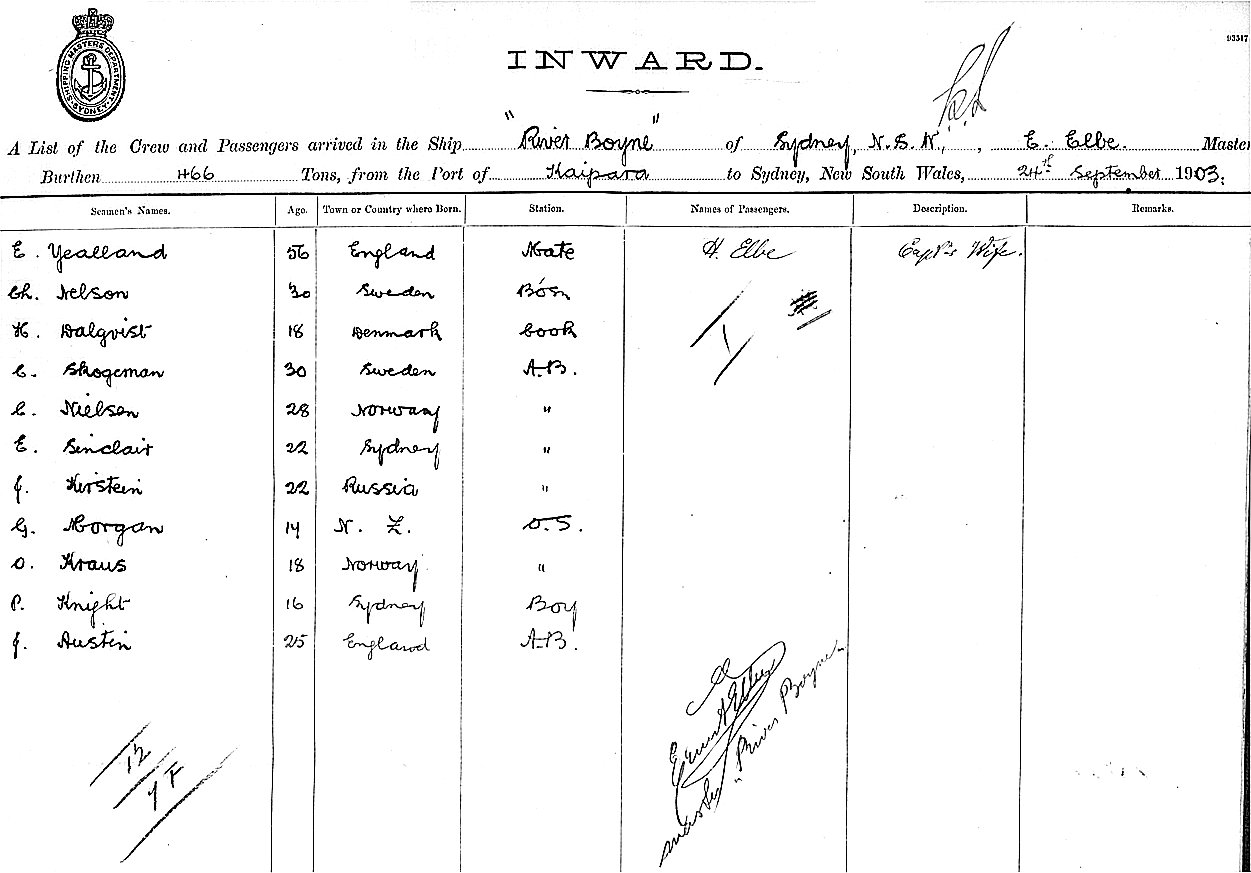 SHIPPING MASTERS DEPARTMENT SYDNEY
93517
INWARD.
A List of the Crew and Passengers arrived in the Ship "River Boyne" of Sydney, N.S.W., E. Elbe. Master
Burthen 466 Tons, from the Port of Kaipara to Sydney, New South Wales, 24th September 1903.
Seamen's Names. Age. Town or Country where Born. Station. Names of Passengers. Description. Remarks.
E. Yealland 56 England Mate H. Elbe Capt's Wife.
Ch. Nelson 30 Sweden Bósn
H. Dalqvist 18 Denmark Cook
C. Skogeman 30 Sweden A.B. 1
C. Nielsen 28 Norway "
E. Sinclair 22 Sydney "
J. Kirstein 22 Russia "
G. Morgan 19 N. Z. O.S.
O. Kraus 18 Norway "
P. Knight 16 Sydney Boy
J. Austin 25 England A.B.
12
master "River Boyne"